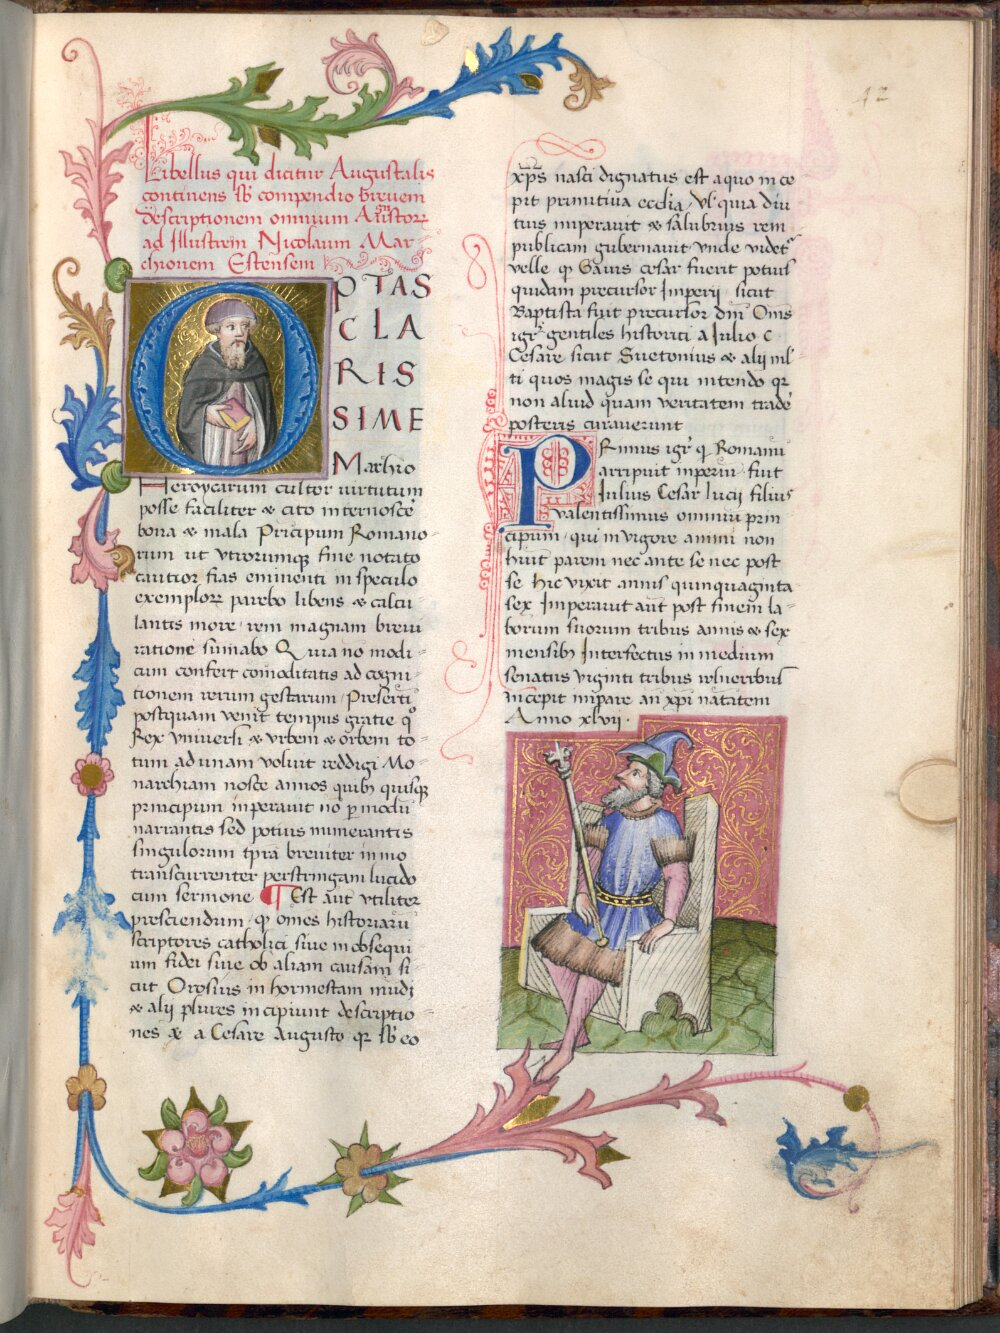 42
Libellus qui dicitur Augustalis
continens sb compendio breuem
descriptionem omnium Augustorꝝ
ad Illustrem Nicolaum Mar-
chionem Estensem
OPTAS
CLA
RIS
SIME
Marhio
Heroycarum cultor uirtutum
posse faciliter & cito internoscē
bona & mala Pricipum Romano-
rum ut vtrorumq fine notato
cautior fias eminenti in speculo
exemplorꝝ parebo libens & calcu-
lantis more rem magnam breui
ratione sūmabo Quia nō modi-
cum confert comoditatis ad cogni-
tionem rerum gestarum Presertī
postquam venit tempus gratie qͦ
Rex vniuersi & vrbem & orbem to-
tum ad unam voluit reddigi Mo-
narchiam nosce annos quibꝫ quisqꝫ
principum inperauit nō ꝑ modū
narrantis sed potius numerantis
singulorum tp̄ra breuiter in mo
transcurrenter perstringam lucido
cum sermone ¶ Est aut̄ vtiliter
presciendum qꝙ om̄es historiarū
scriptores catholici siue in obsequi-
um fidei siue ob aliam causam si-
cut Orosius in hormestam mūdi
& alij plures incipiunt descriptio-
nes & a Cesare Augusto qꝛ sb eo
xp̄s nasci dignatus est a quo ince-
pit primitiua ecclīa vl quia diu-
tius imperauit & salubrius rem
publicam gubernauit vnde videtʳ
velle qꝙ Gaius cesar fuerit potius
quidam precursor Imperij sicut
Baptista fuit precursor dn̄i Om̄s
igrͬ gentiles historici a Julio C
Cesare sicut Suetonius & alij ml̄-
ti quos magis sequi intendo qꝛ
non aliud quam veritatem tradē
posteris curauerunt
PRimus igrͬ qͥ Romanū
arripuit inperiū fuit
Iulius Cesar lucij filius
valentissimus omniū prin-
cipum qui in vigore animi non
h̄uit parem nec ante se nec post
se hic vixit annis quinquaginta
sex Imperauit aūt post finem la-
borum suorum tribus annis & sex
mensibꝫ Interfectus in medium
senatus viginti tribus vulneribus
incepit īmpare an̄ xp̄i natātem
Anno xlvij.